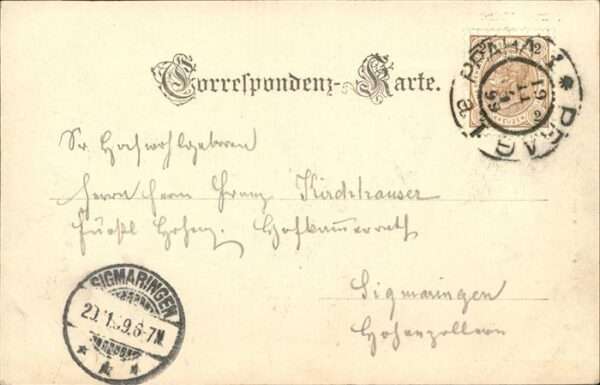 Correspondenz-Karte.
PRAHA 1
19
11
99
PRAG 1 a
2
2
KREUZER
Sr Hochwohlgeboren
Herrn Herrn Franz Kirchhauser
Fürstl. Hohenz. Hofkammerrath
Sigmaringen
Hohenzollern
SIGMARINGEN
6-7N.